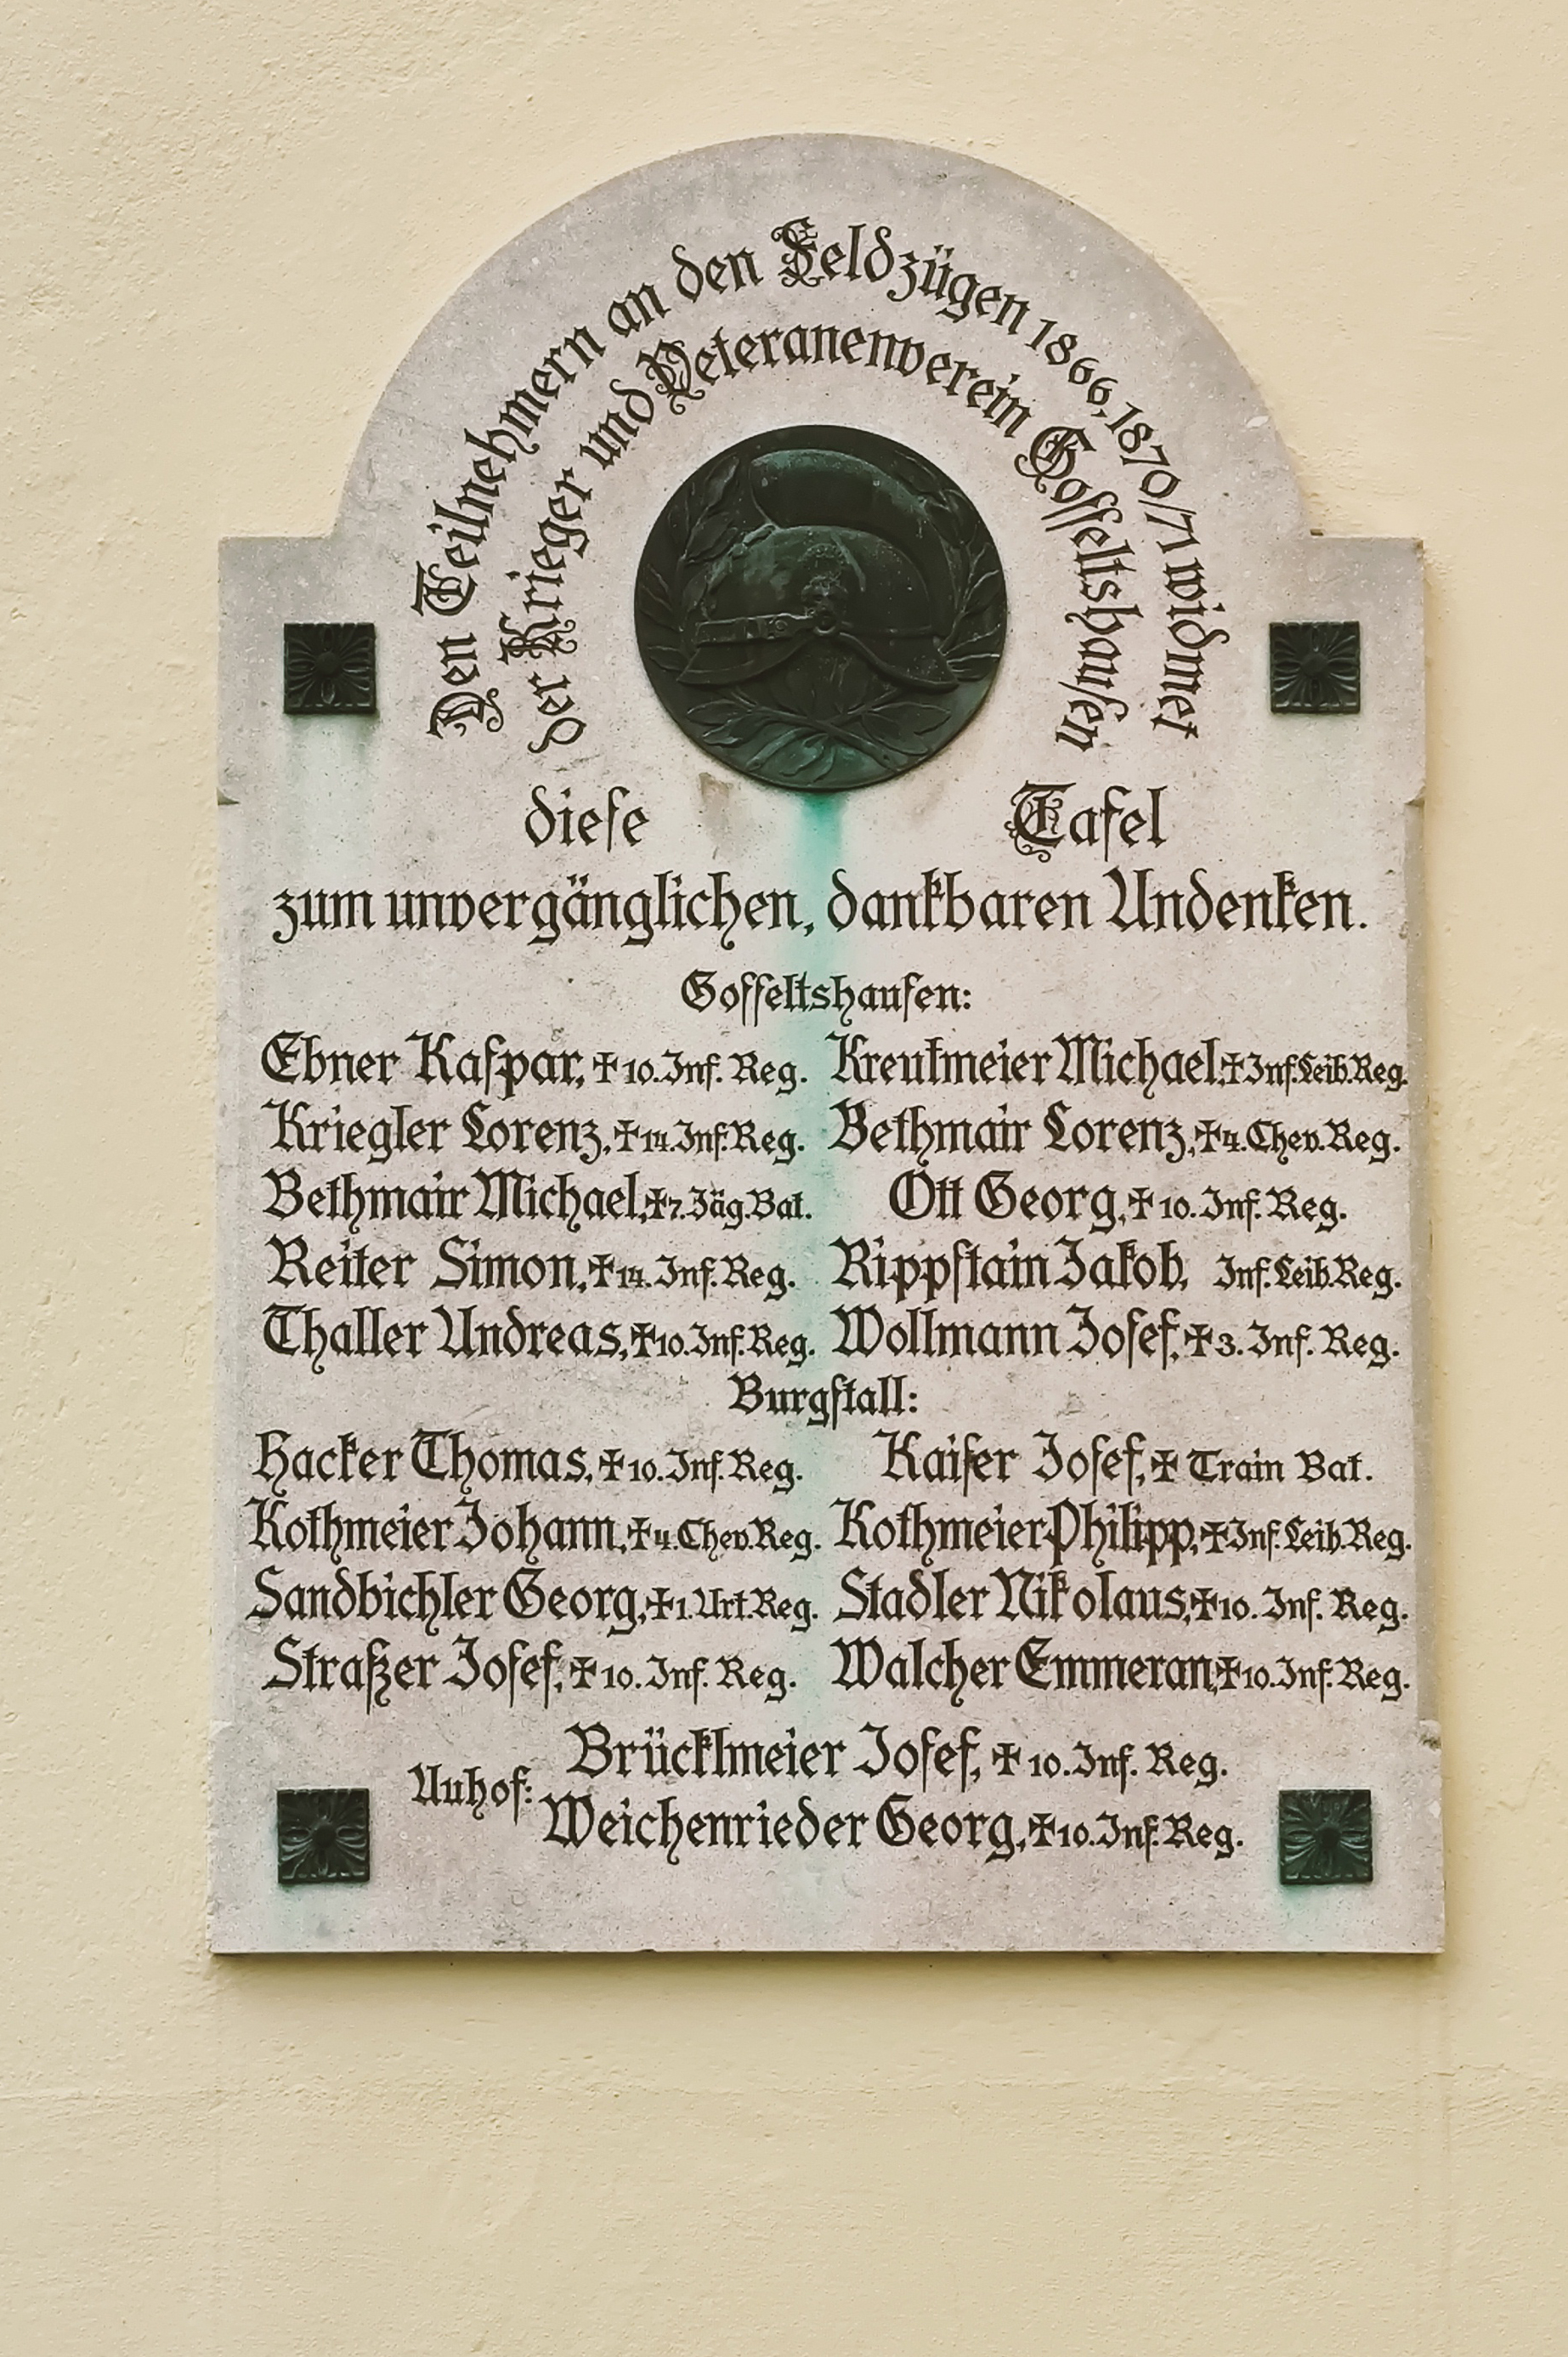 Den Teilnehmern an den Feldzügen 1866, 1870/71 widmet
der Krieger und Veteranenverein Gosseltshausen
diese Tafel
zum unvergänglichen, dankbaren Andenken.
Gosseltshausen:
Ebner Kaspar, ✠ 10. Inf. Reg. Kreutmeier Michael, ✠ Inf. Leib. Reg.
Kriegler Lorenz, ✠ 14. Inf. Reg. Bethmair Lorenz, ✠ 4. Chev. Reg.
Bethmair Michael, ✠ 7. Jäg. Bat. Ott Georg, ✠ 10. Inf. Reg.
Reiter Simon, ✠ 14. Inf. Reg. Rippstain Jakob, Inf. Leib. Reg.
Thaller Andreas, ✠ 10. Inf. Reg. Wollmann Josef, ✠ 3. Inf. Reg.
Burgstall:
Hacker Thomas, ✠ 10. Inf. Reg. Kaiser Josef, ✠ Train Bat.
Kothmeier Johann, ✠ 4. Chev. Reg. Kothmeier Philipp, ✠ Inf. Leib. Reg.
Sandbichler Georg, ✠ 1. Art. Reg. Stadler Nikolaus, ✠ 10. Inf. Reg.
Straßer Josef, ✠ 10. Inf. Reg. Walcher Emmeran, ✠ 10. Inf. Reg.
Auhof: Brücklmeier Josef, ✠ 10. Inf. Reg.
Weichenrieder Georg, ✠ 10. Inf. Reg.